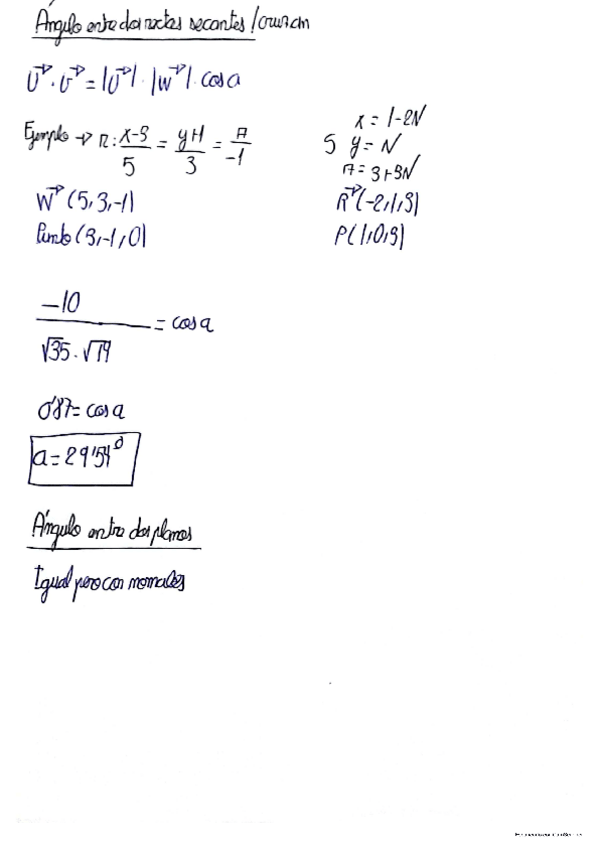 Ángulo entre dos rectas secantes / cruzan
U⃗ · v⃗ = |U⃗| · |W⃗| · cos a
Ejemplo → r: x-3/5 = y+1/3 = z/-1
S x = 1-2N
y = N
z = 3+3N
W⃗ (5,3,-1)
R⃗ (-2,1,3)
Punto (3,-1,0)
P(1,0,3)
-10/√35 · √14 = cos a
0'87 = cos a
a = 29'54°
Ángulo entre dos planos
Igual pero con normales